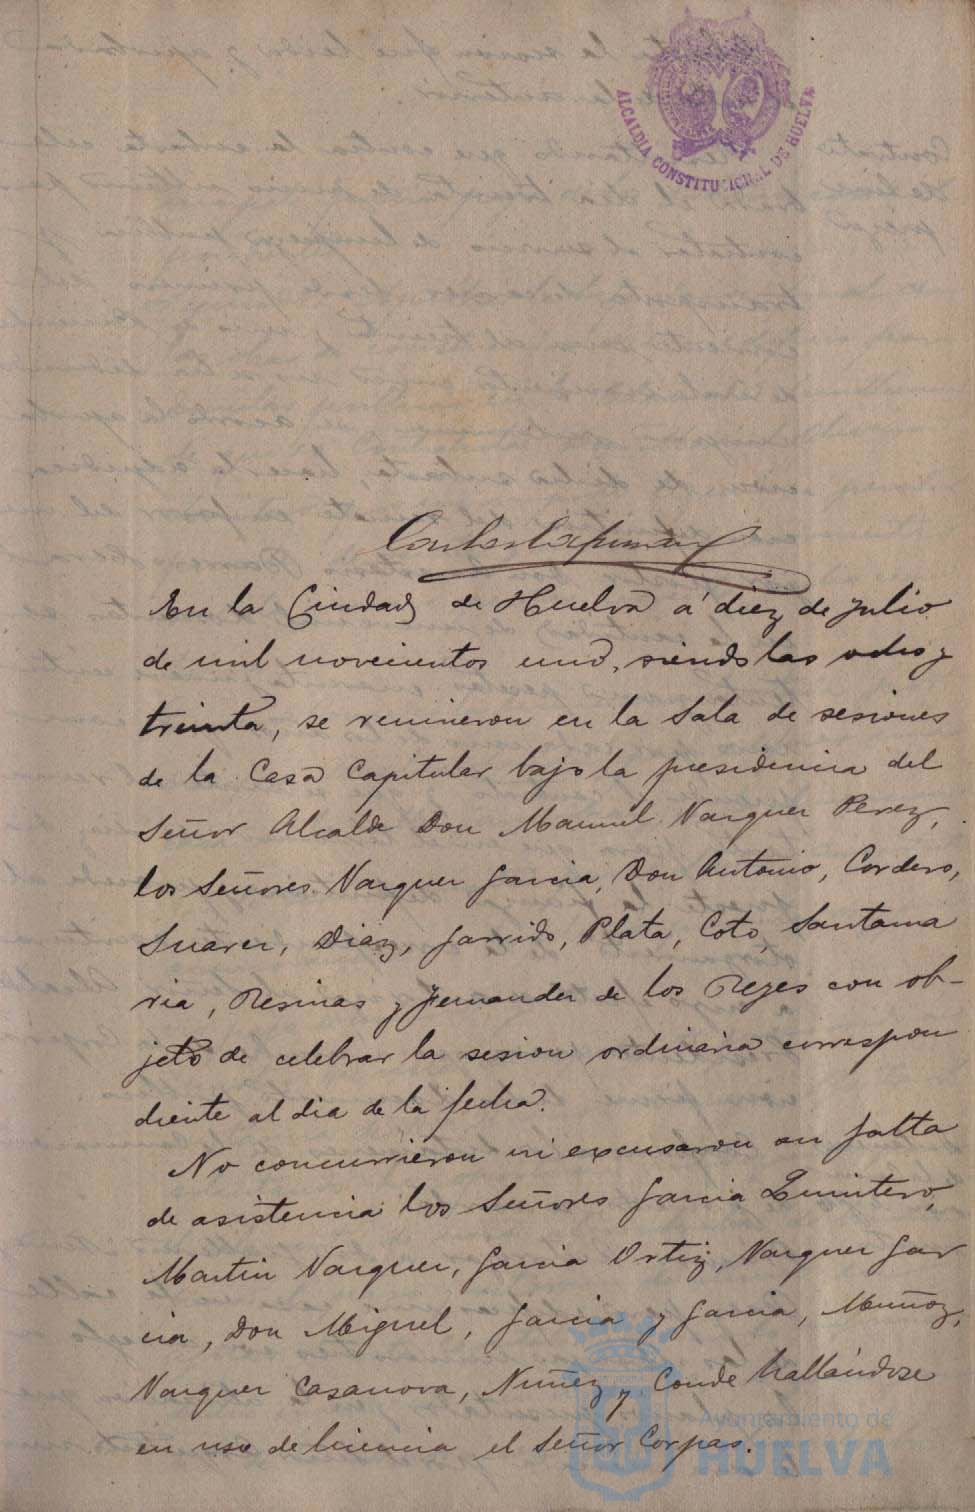 ALCALDIA CONSTITUCIONAL DE HUELVA
En la Ciudad de Huelva á diez de julio
de mil novecientos uno, siendo las ocho y
treinta, se reunieron en la Sala de sesiones
de la Casa Capitular bajo la presidencia del
Señor Alcalde Don Manuel Vazquez Perez,
los Señores Vazquez Garcia, Don Antonio, Cordero,
Suarez, Diaz, Garrido, Plata, Coto, Santama
ria, Resinas y Fernandez de los Reyes con ob-
jeto de celebrar la sesion ordinaria correspon
diente al dia de la fecha.
No concurrieron ni excusaron su falta
de asistencia los Señores Garcia Quintero,
Martin Vazquez, Garcia Ortiz, Vazquez Gar
cia, Don Miguel, Garcia y Garcia, Muñoz,
Vazquez Casanova, Nuñez y Conde hallándose
en uso de licencia el Señor Corpas.
Ayuntamiento de
HUELVA